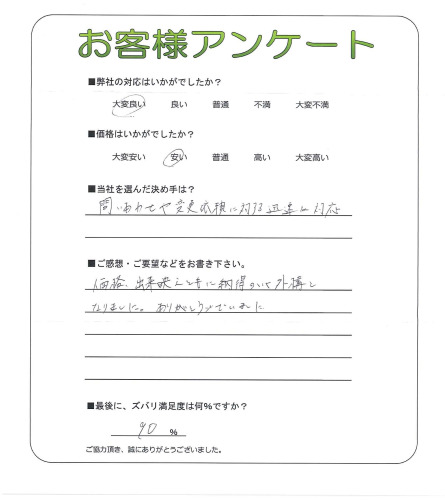 お客様アンケート
■弊社の対応はいかがでしたか？
大変良い 良い 普通 不満 大変不満
■価格はいかがでしたか？
大変安い 安い 普通 高い 大変高い
■当社を選んだ決め手は？
問いあわせや変更依頼に対する迅速な対応
■ご感想・ご要望などをお書き下さい。
価格、出来映えともに納得のいく外構と
なりました。ありがとうございました
■最後に、ズバリ満足度は何％ですか？
90 ％
ご協力頂き、誠にありがとうございました。